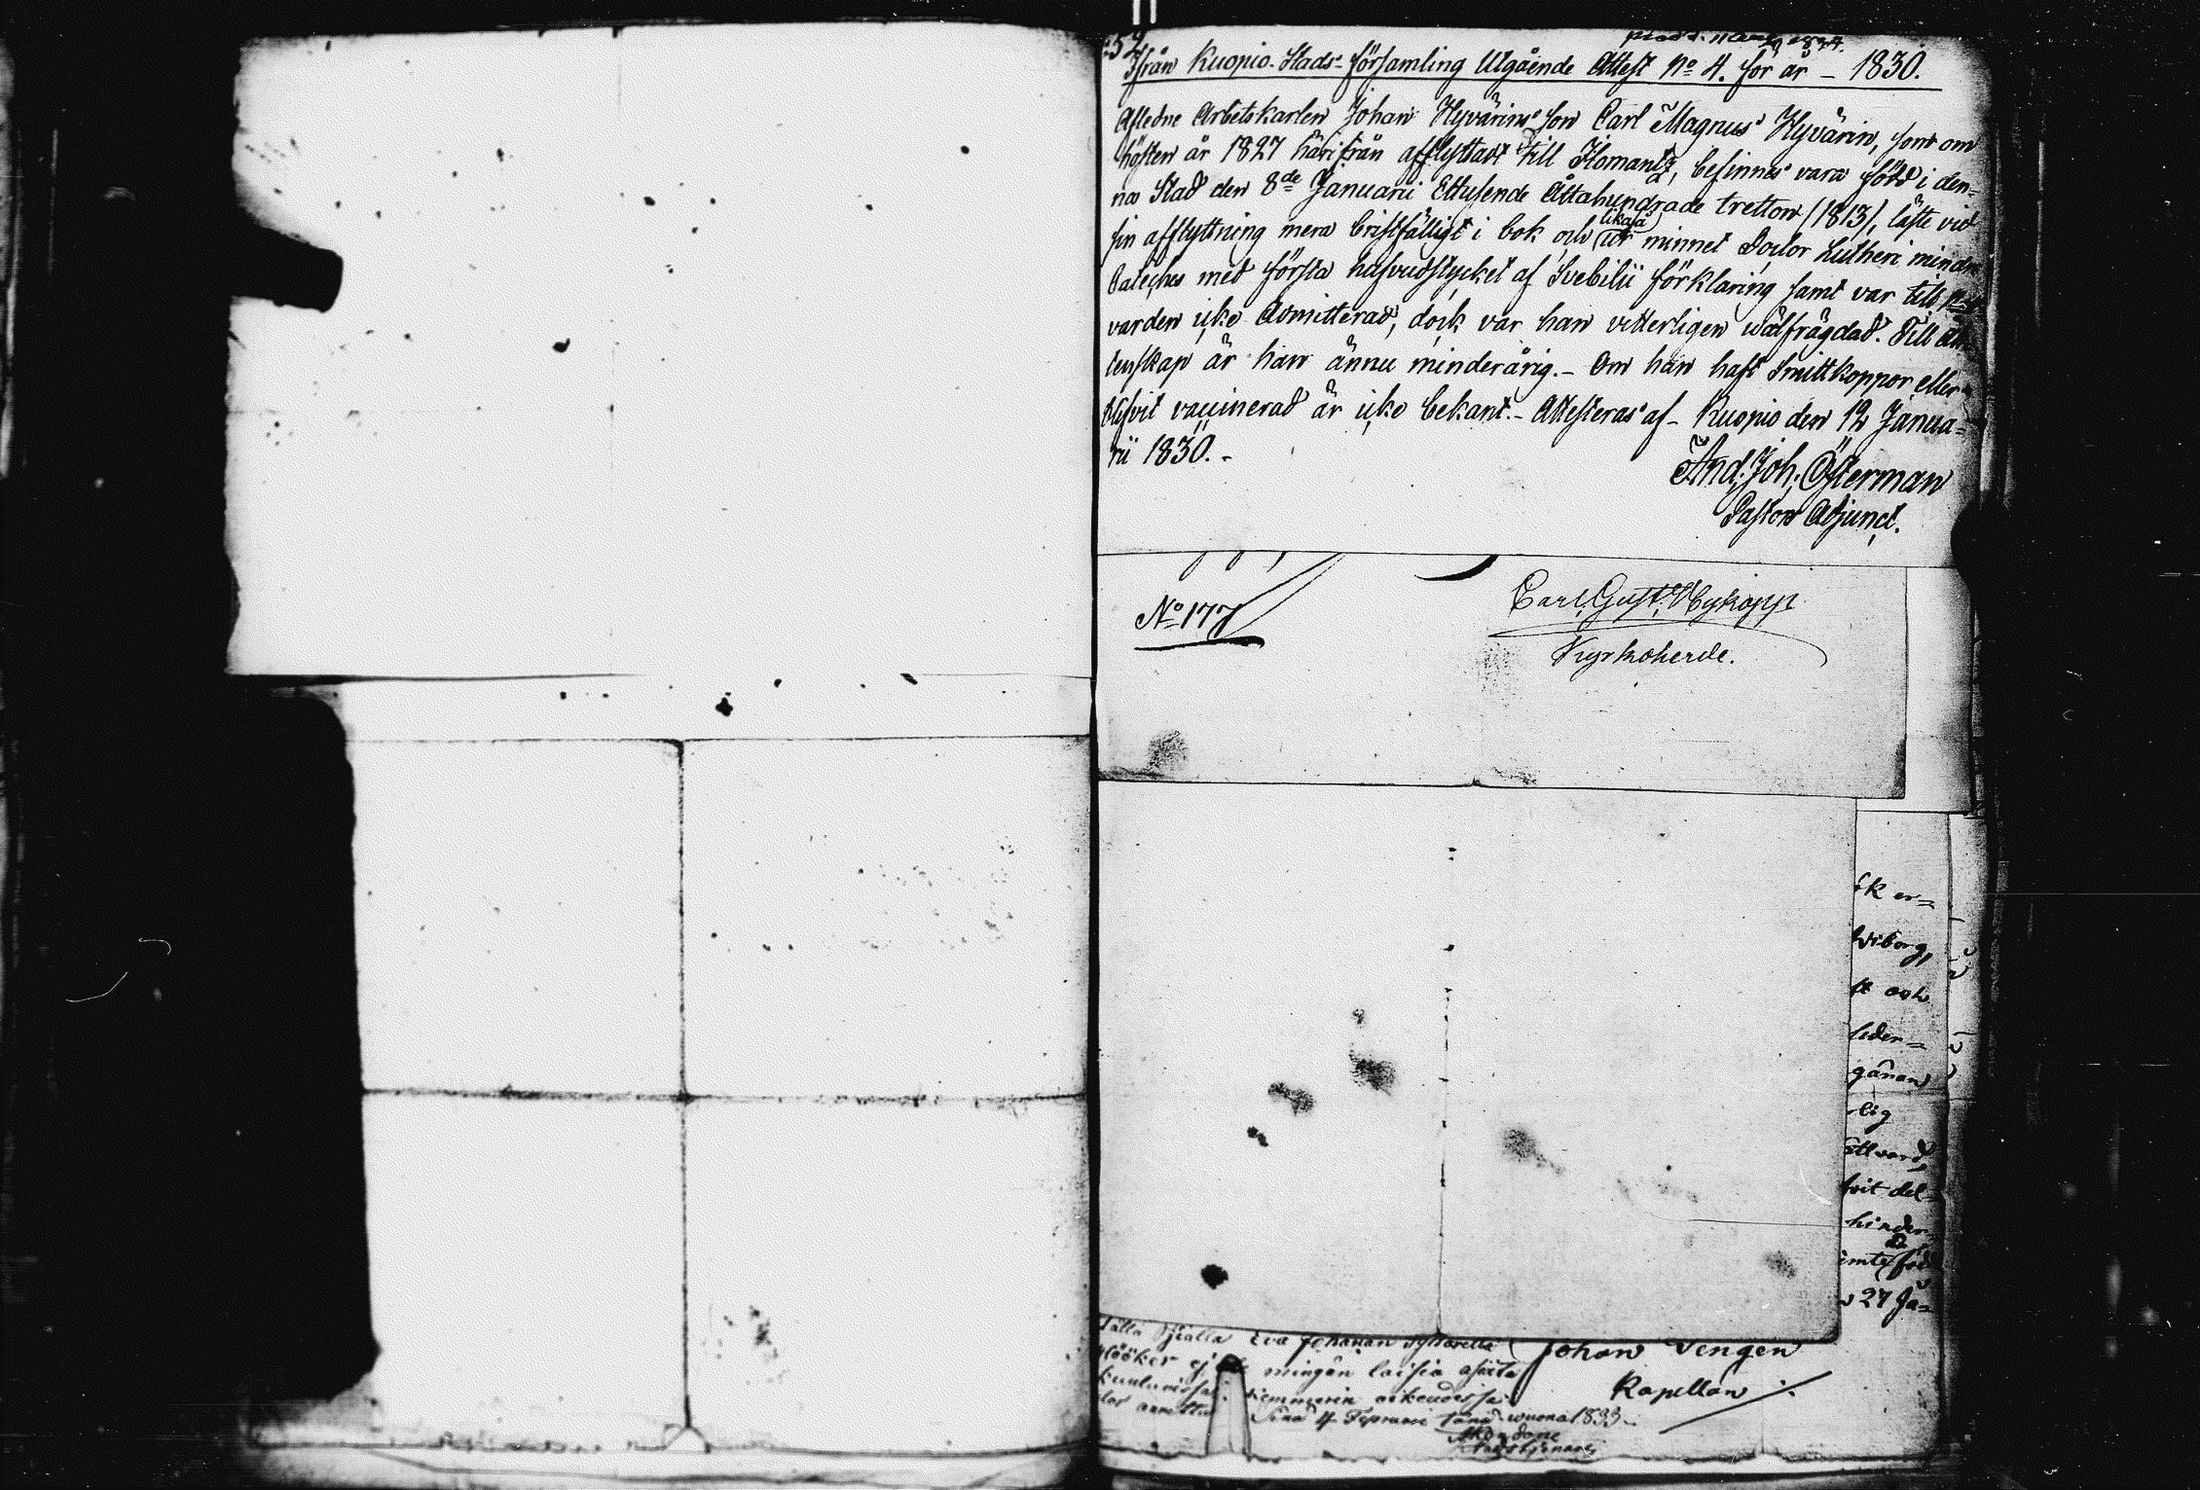 Ifrån Kuopio Stads-församling Utgående Attest No 4. för år – 1830.
Afledne Arbetskarlen Johan Hyvärins son Carl Magnus Hyvärin, som om
hösten år 1827 härifrån afflyttadt till Ilomantz, befinnes vara född i den-
na Stad den 8de Januarii Ettusende Åttahundrade tretton (1813), läste vid
sin afflyttning mera bristfälligt i bok och likaså ur minnet Doctor Lutheri mindre
Cateches med första hufvudstycket af Svebilii förklaring samt var till
varden icke Admitterad, dock var han vitterligen wälfrägdad. Till
tenskap är han ännu minderårig. – Om han haft Smittkoppor eller
blifvit vaccinerad är icke bekant. – Attesteras af – Kuopio den 12 Janua-
rii 1830. –
And. Joh. Österman
Pastors Adjunct.
No 177
Carl Gust. Wykopp
Kyrkoherde.
ök er=
Wiborg,
och
leder=
gånen
-lig
vit del-
hinder
27 Ja-
Johan Vengen
Kapellan
Eva Johanan
mingän
Sinä 4 tänä vuona 1833